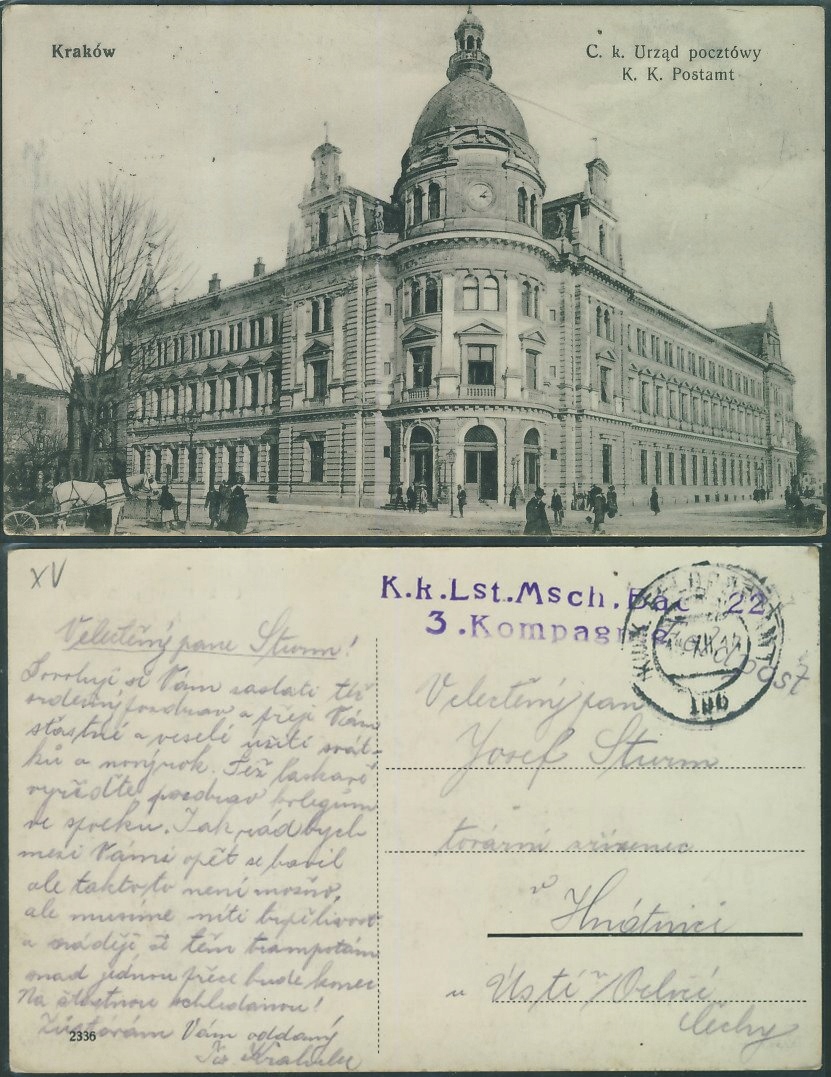 Kraków
C. k. Urząd pocztówy
K. K. Postamt
XV
K.k.Lst.Msch.Bao 22
3.Kompagnie
Feldpost
186
Velectěný pane Sturm!
Dovoluji si Vám zaslati též
srdečný pozdrav a přeji Vám
šťastné a veselé užití svát-
ků a nový rok. Též laskavě
vyřiďte pozdrav kolegům
ve spolku. Jak rád bych
mezi Vámi opět se bavil
ale takto to není možno,
ale musíme míti trpělivost
a naději že těm trampotám
snad jednou přece bude konec
Na šťastnou schledanou!
Zůstávám Vám oddaný
2336
Velectěný pan
Josef Sturm
tovární zřízenec
v Hnátnici
u Ústí n/Orlicí
Čechy